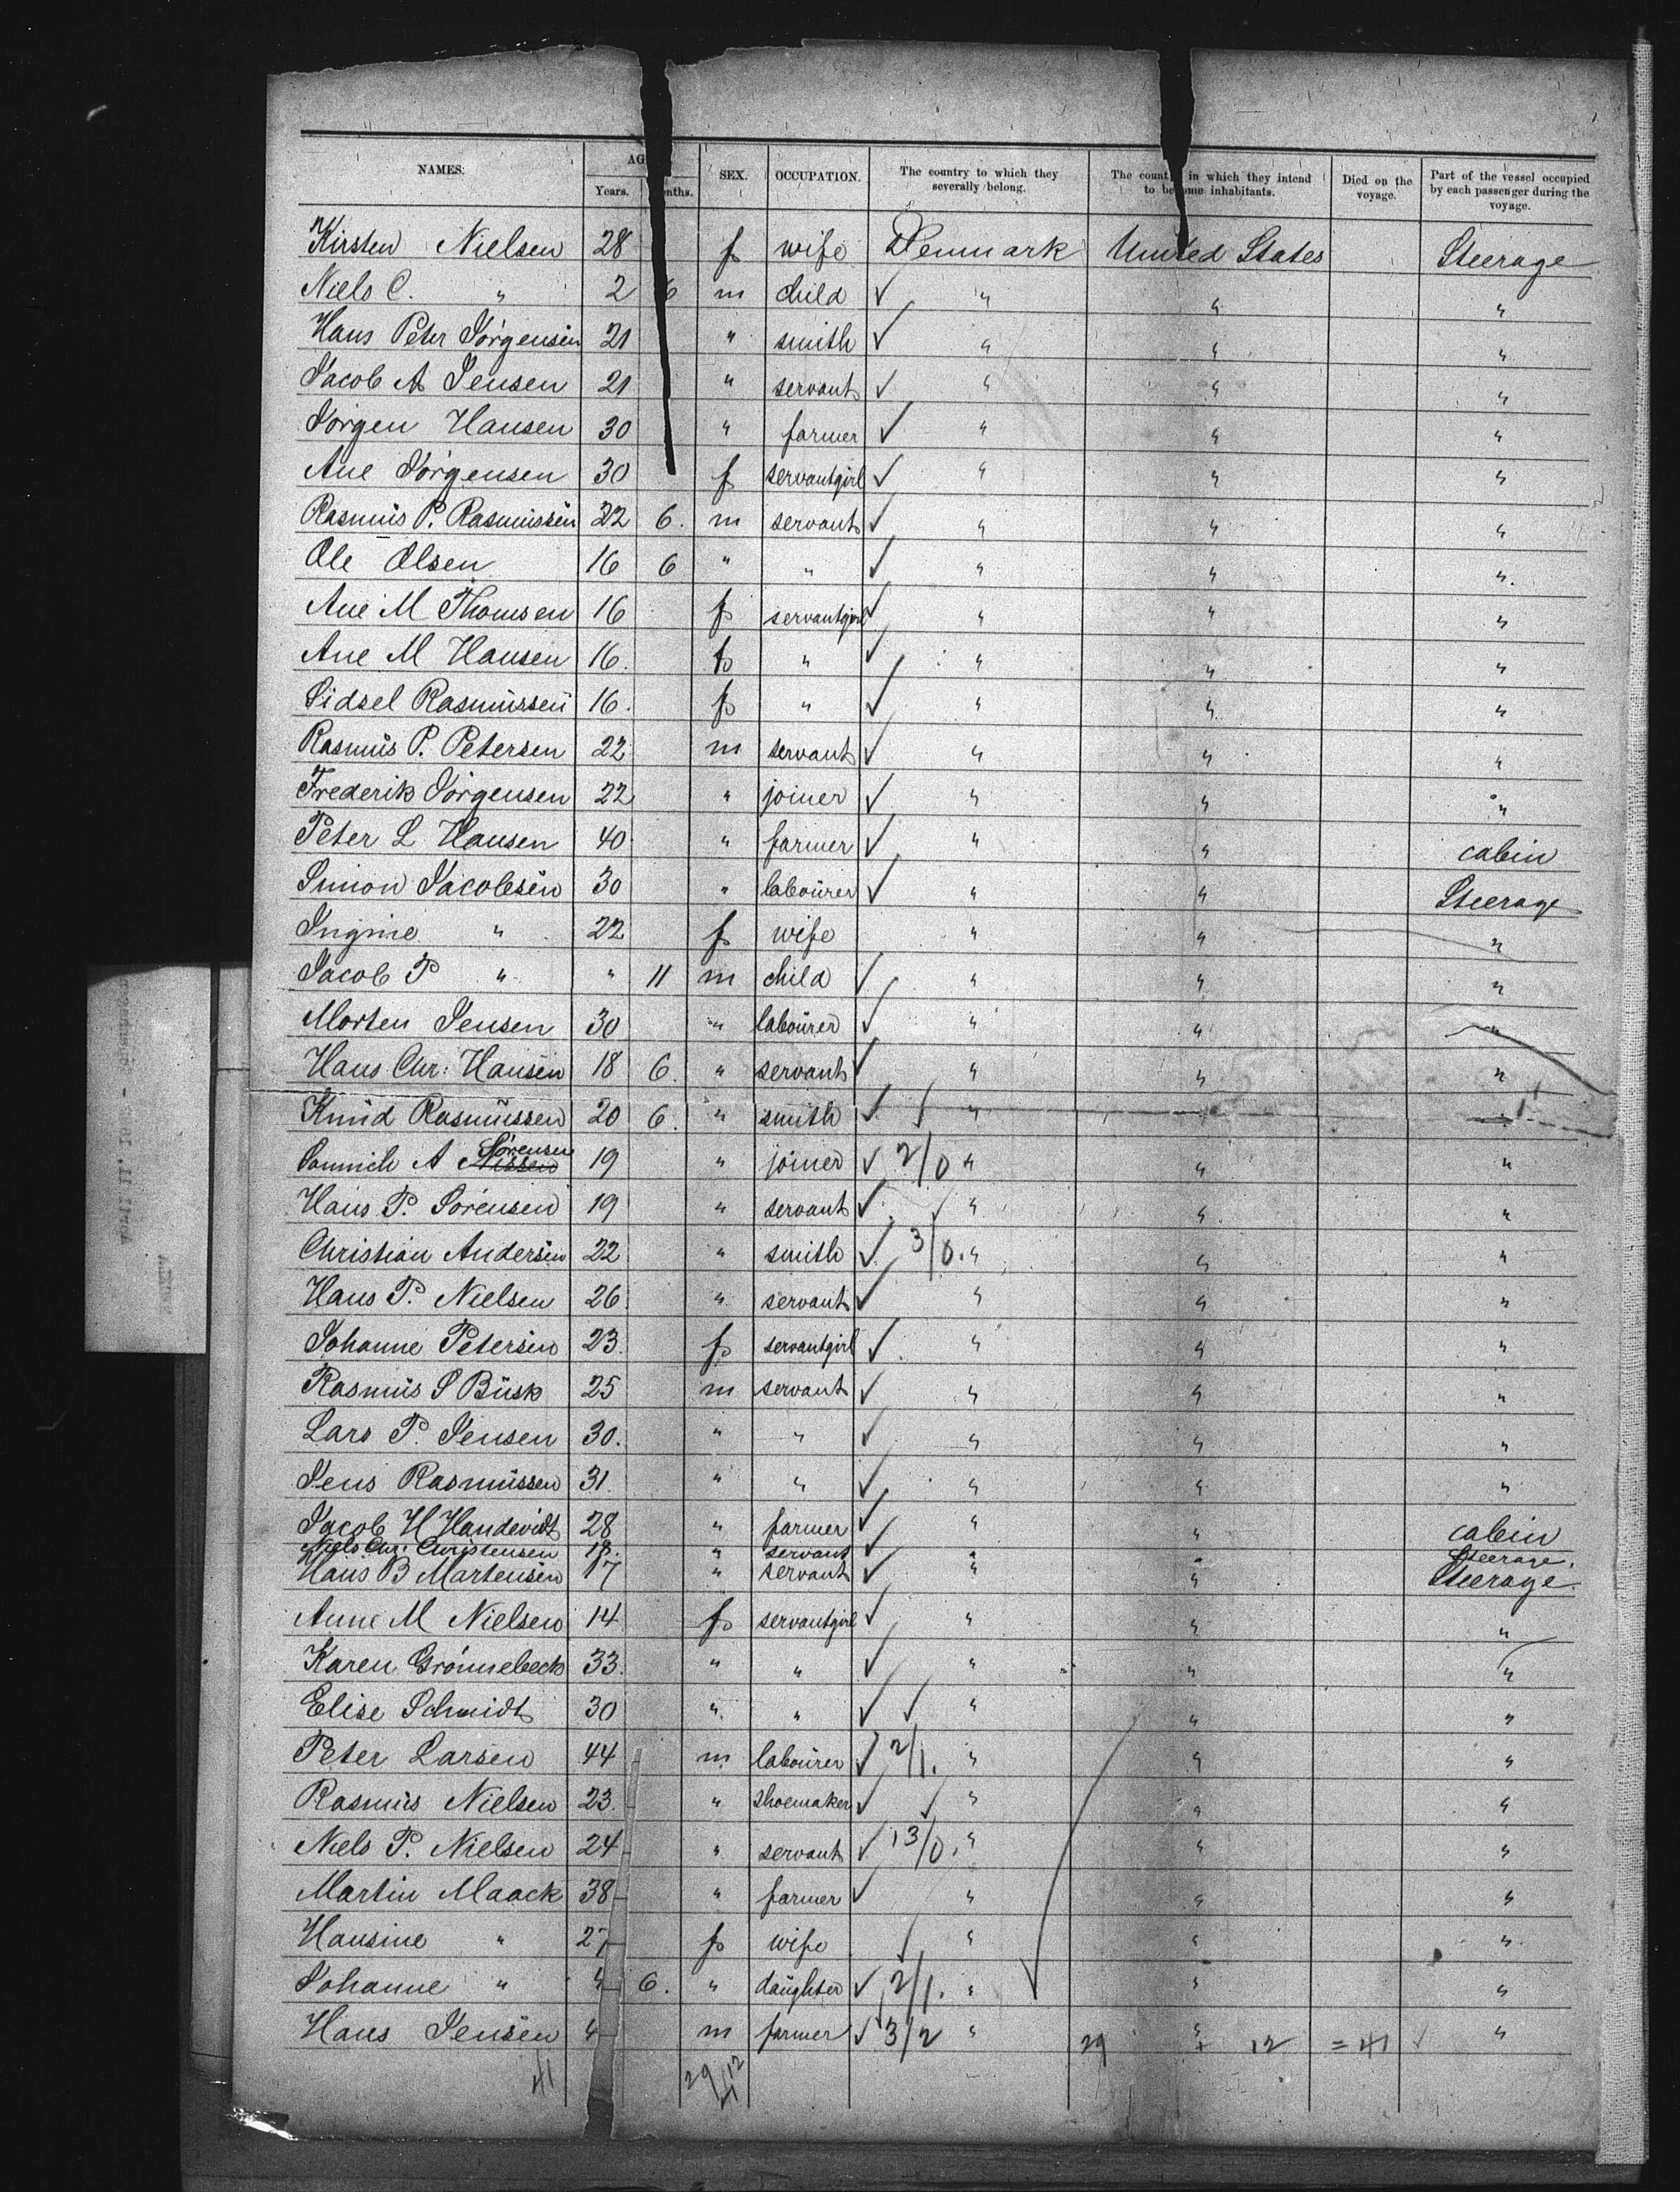 NAMES. AG Years. nths. SEX. OCCUPATION. The country to which they severally belong. The count in which they intend to become inhabitants. Died on the voyage. Part of the vessel occupied by each passenger during the voyage.
Kirsten Nielsen 28 f wife Denmark United States Steerage
Niels C. " 2 6 m child ✓ " " "
Hans Peter Jörgensen 21 " smith ✓ " " "
Jacob A Jensen 21 " servant ✓ " " "
Jörgen Hansen 30 " farmer ✓ " " "
Ane Jörgensen 30 f servantgirl ✓ " " "
Rasmus P. Rasmussen 22 6. m servant ✓ " " "
Ole Olsen 16 6 " " ✓ " " "
Ane M Thomsen 16 f servantgirl ✓ " " "
Ane M Hansen 16. f " ✓ " " "
Sidsel Rasmussen 16. f " ✓ " " "
Rasmus P. Petersen 22 m servant ✓ " " "
Frederik Jörgensen 22 " joiner ✓ " " "
Peter L Hansen 40 " farmer ✓ " " cabin
Simon Jacobsen 30 " labourer ✓ " " Steerage
Ingine " 22 f wife " " "
Jacob P " " 11 m child ✓ " " "
Morten Jensen 30 " labourer ✓ " " "
Hans Chr: Hansen 18 6. " servant ✓ " " "
Knud Rasmussen 20 6. " smith ✓ / " " "
Sörensen
Sonnich A Nissen 19 " joiner ✓ 2/0 " " "
Hans P. Sörensen 19 " servant ✓ / " " "
Christian Andersen 22 " smith ✓ 3/0. " " "
Hans P. Nielsen 26 " servant ✓ " " "
Johanne Petersen 23. f servantgirl ✓ " " "
Rasmus S Busk 25 m servant ✓ " " "
Lars P. Jensen 30. " " ✓ " " "
Jens Rasmussen 31. " " ✓ " " "
Jacob H Handevidt 28 " farmer ✓ " " cabin
Niels Chr: Christensen 18. " servant ✓ " " Steerage.
Hans B Martensen 17 " servant ✓ " " Steerage.
Anne M Nielsen 14 f servantgirl ✓ " " "
Karen Grönnebeck 33. " " ✓ " " "
Elise Schmidt 30 " " ✓ / " " "
Peter Larsen 44 m labourer ✓ 2/1. " " "
Rasmus Nielsen 23. " shoemaker ✓ / " " "
Niels P. Nielsen 24 " servant ✓ 13/0. " " "
Martin Maack 38 " farmer ✓ " " "
Hansine " 27 f wife / " " "
Johanne " 4 6. " daughter ✓ 2/1. " " "
Hans Jensen 4 m farmer ✓ 3/2 " " "
29 + 12 = 41 ✓
41 29/12 41